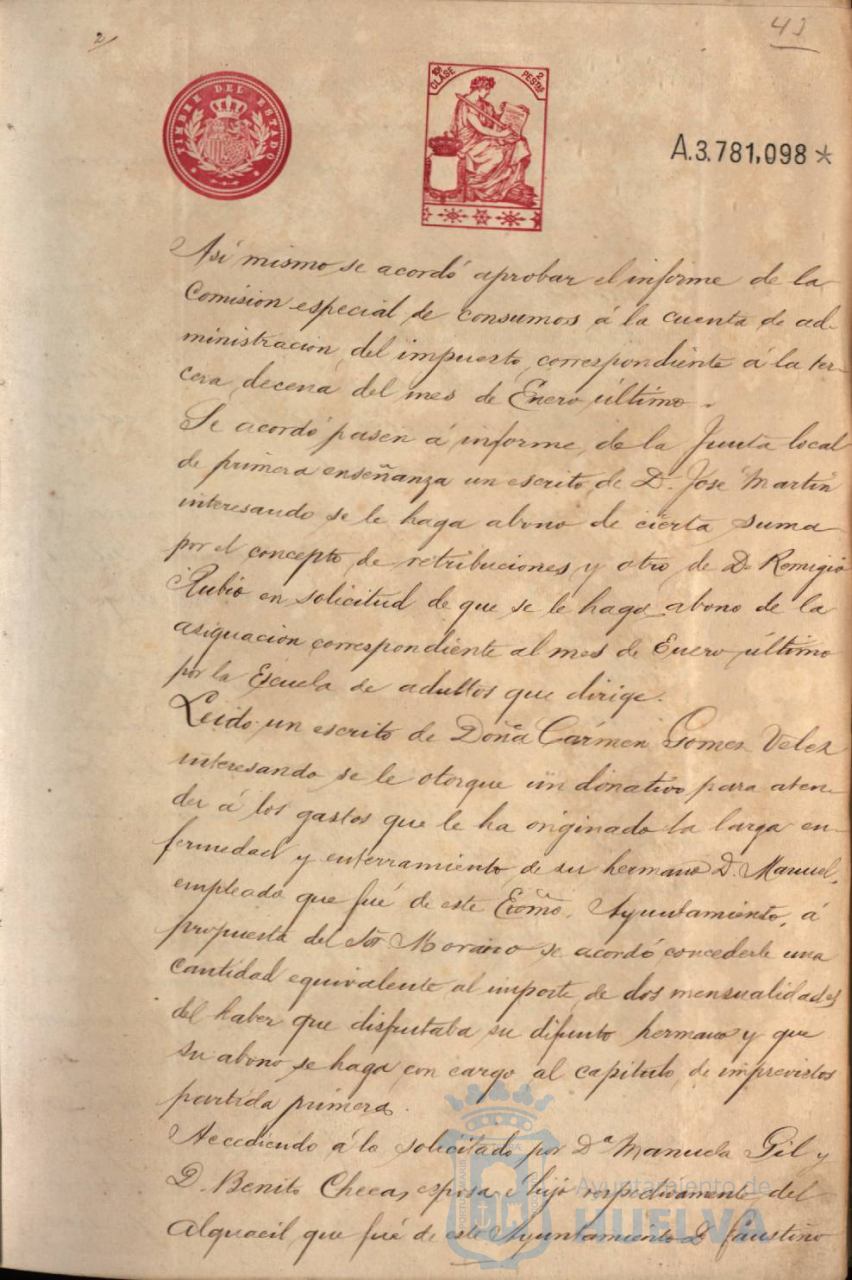 2/
43
TIMBRE DEL ESTADO
10ª CLASE
2 PESTAS
A.3.781,098*
Así mismo se acordó aprobar el informe de la
Comision especial de consumos á la cuenta de ad-
ministracion del impuesto correspondiente á la ter-
cera decena del mes de Enero último.
Se acordó pasen á informe de la Junta local
de primera enseñanza un escrito de D. José Martin
interesando se le haga abono de cierta suma
por el concepto de retribuciones y otro de Dn Romigio
Rubio en solicitud de que se le haga abono de la
asignacion correspondiente al mes de Enero último
por la Escuela de adultos que dirige.
Leido un escrito de Doña Cármen Gomez Velez
interesando se le otorgue un donativo para aten-
der á los gastos que le ha originado la larga en-
fermedad y enterramiento de su hermano D. Manuel,
empleado que fué de este Excmo. Ayuntamiento, á
propuesta del Sor Morano se acordó concederle una
cantidad equivalente al importe de dos mensualidades
del haber que disfrutaba su difunto hermano y que
su abono se haga con cargo al capitulo de imprevistos
partida primera.
Accediendo á lo solicitado por Dª Manuela Gil y
D. Benito Checa, esposa é hijo respectivamente del
Alguacil que fué de este Ayuntamiento D. Faustino
Ayuntamiento de
HUELVA